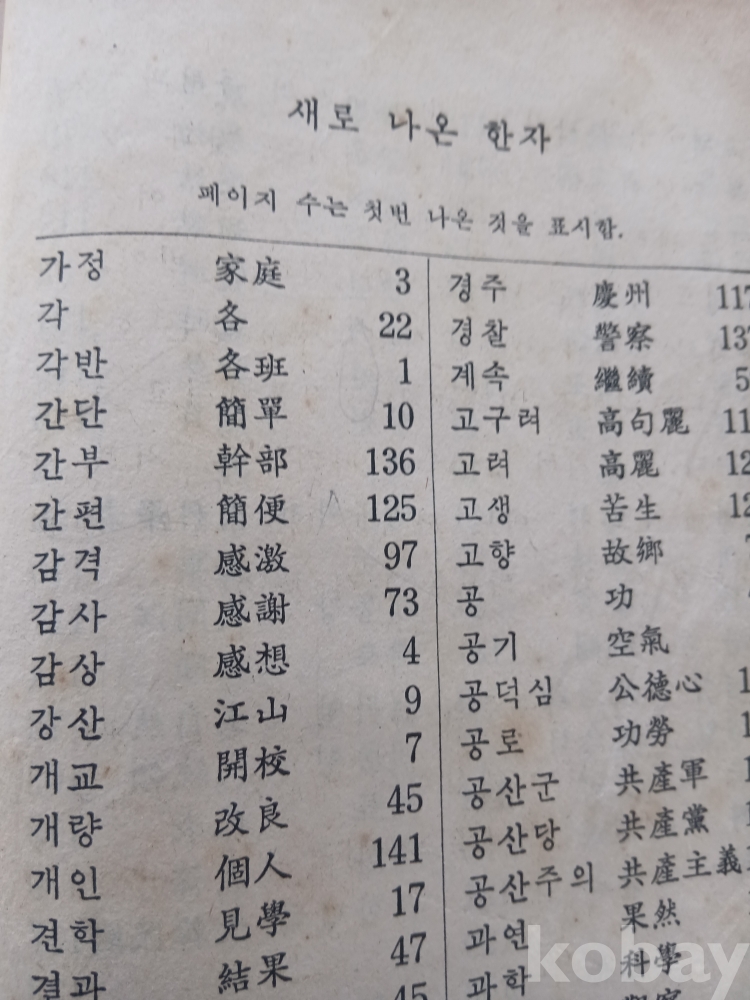 새로 나온 한자
페이지 수는 첫번 나온 것을 표시함.
가정 家庭 3
각 各 22
각반 各班 1
간단 簡單 10
간부 幹部 136
간편 簡便 125
감격 感激 97
감사 感謝 73
감상 感想 4
강산 江山 9
개교 開校 7
개량 改良 45
개인 個人 141
견학 見學 17
결과 結果 47
45
경주 慶州 117
경찰 警察
계속 繼續
고구려 高句麗
고려 高麗
고생 苦生
고향 故鄕
공 功
공기 空氣
공덕심 公德心
공로 功勞
공산군 共產軍
공산당 共產黨
공산주의 共產主義
과연 果然
과학 科學
kobay